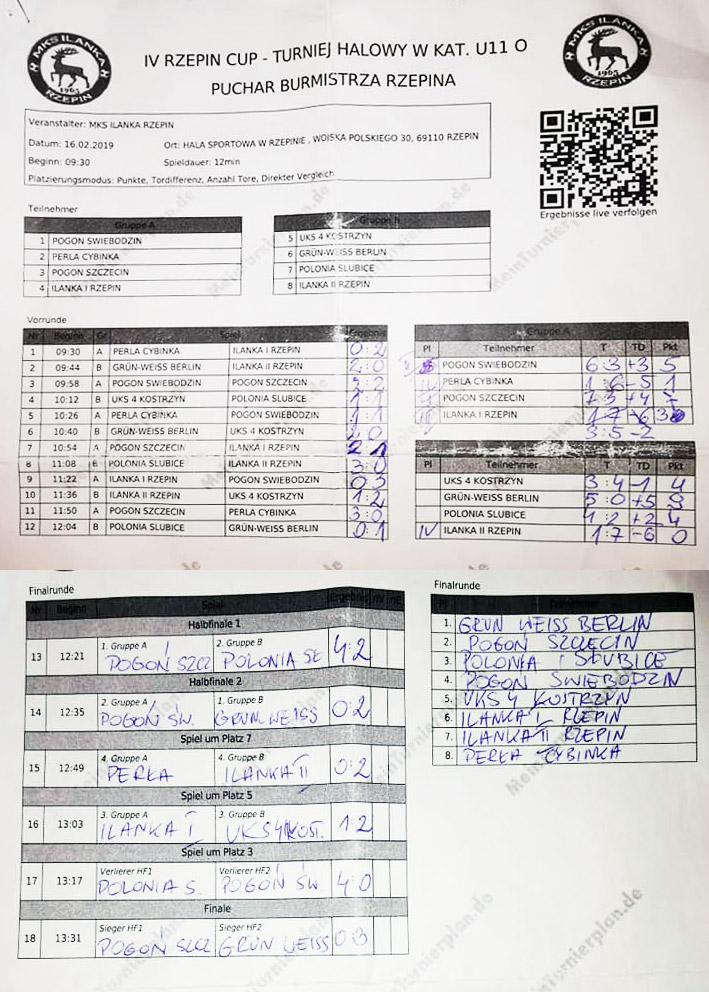 MKS ILANKA
1965
RZEPIN
MKS ILANKA
1965
RZEPIN
IV RZEPIN CUP - TURNIEJ HALOWY W KAT. U11 O
PUCHAR BURMISTRZA RZEPINA
Veranstalter: MKS ILANKA RZEPIN
Datum: 16.02.2019 Ort: HALA SPORTOWA W RZEPINIE , WOJSKA POLSKIEGO 30, 69110 RZEPIN
Beginn: 09:30 Spieldauer: 12min
Platzierungsmodus: Punkte, Tordifferenz, Anzahl Tore, Direkter Vergleich
Ergebnisse live verfolgen
Teilnehmer
Gruppe A
1 POGON SWIEBODZIN
2 PERLA CYBINKA
3 POGON SZCZECIN
4 ILANKA I RZEPIN
5 UKS 4 KOSTRZYN
6 GRÜN-WEISS BERLIN
7 POLONIA SLUBICE
8 ILANKA II RZEPIN
Vorrunde
Nr Beginn Gr Spiel Ergebnis
1 09:30 A PERLA CYBINKA ILANKA I RZEPIN 0:2
2 09:44 B GRÜN-WEISS BERLIN ILANKA II RZEPIN 2:0
3 09:58 A POGON SWIEBODZIN POGON SZCZECIN 2:2
4 10:12 B UKS 4 KOSTRZYN POLONIA SLUBICE 1:1
5 10:26 A PERLA CYBINKA POGON SWIEBODZIN 1:1
6 10:40 B GRÜN-WEISS BERLIN UKS 4 KOSTRZYN 2:0
7 10:54 A POGON SZCZECIN ILANKA I RZEPIN 2 1
8 11:08 B POLONIA SLUBICE ILANKA II RZEPIN 3:0
9 11:22 A ILANKA I RZEPIN POGON SWIEBODZIN 0:3
10 11:36 B ILANKA II RZEPIN UKS 4 KOSTRZYN 1:2
11 11:50 A POGON SZCZECIN PERLA CYBINKA 3:0
12 12:04 B POLONIA SLUBICE GRÜN-WEISS BERLIN 0:1
Gruppe A
Pl Teilnehmer T TD Pkt
POGON SWIEBODZIN 6:3 +3 5
PERLA CYBINKA 1:6 -5 1
POGON SZCZECIN 7:3 +4 7
ILANKA I RZEPIN 3
3:5 -2
Pl Teilnehmer T TD Pkt
UKS 4 KOSTRZYN 3:4 -1 4
GRÜN-WEISS BERLIN 5:0 +5 9
POLONIA SLUBICE 4:2 +2 4
IV ILANKA II RZEPIN 1:7 -6 0
Finalrunde
Nr Beginn Spiel Ergebnis nV nE
Halbfinale 1
13 12:21 1. Gruppe A 2. Gruppe B
POGOŃ SZCZ POLONIA SŁ 4:2
Halbfinale 2
14 12:35 2. Gruppe A 1. Gruppe B
POGOŃ ŚW. GRUN WEISS 0:2
Spiel um Platz 7
15 12:49 4. Gruppe A 4. Gruppe B
PERŁA ILANKA II 0:2
Spiel um Platz 5
16 13:03 3. Gruppe A 3. Gruppe B
ILANKA I UKS 4 KOST. 1:2
Spiel um Platz 3
17 13:17 Verlierer HF1 Verlierer HF2
POLONIA S. POGOŃ ŚW 4:0
Finale
18 13:31 Sieger HF1 Sieger HF2
POGOŃ SZCZ GRÜN WEISS 0:3
Finalrunde
Pl Teilnehmer
1. GRUN WEISS BERLIN
2. POGOŃ SZCZECIN
3. POLONIA SŁUBICE
4. POGOŃ ŚWIEBODZIN
5. UKS 4 KOSTRZYN
6. ILANKA I RZEPIN
7. ILANKA II RZEPIN
8. PERŁA CYBINKA
MeinTurnierplan.de